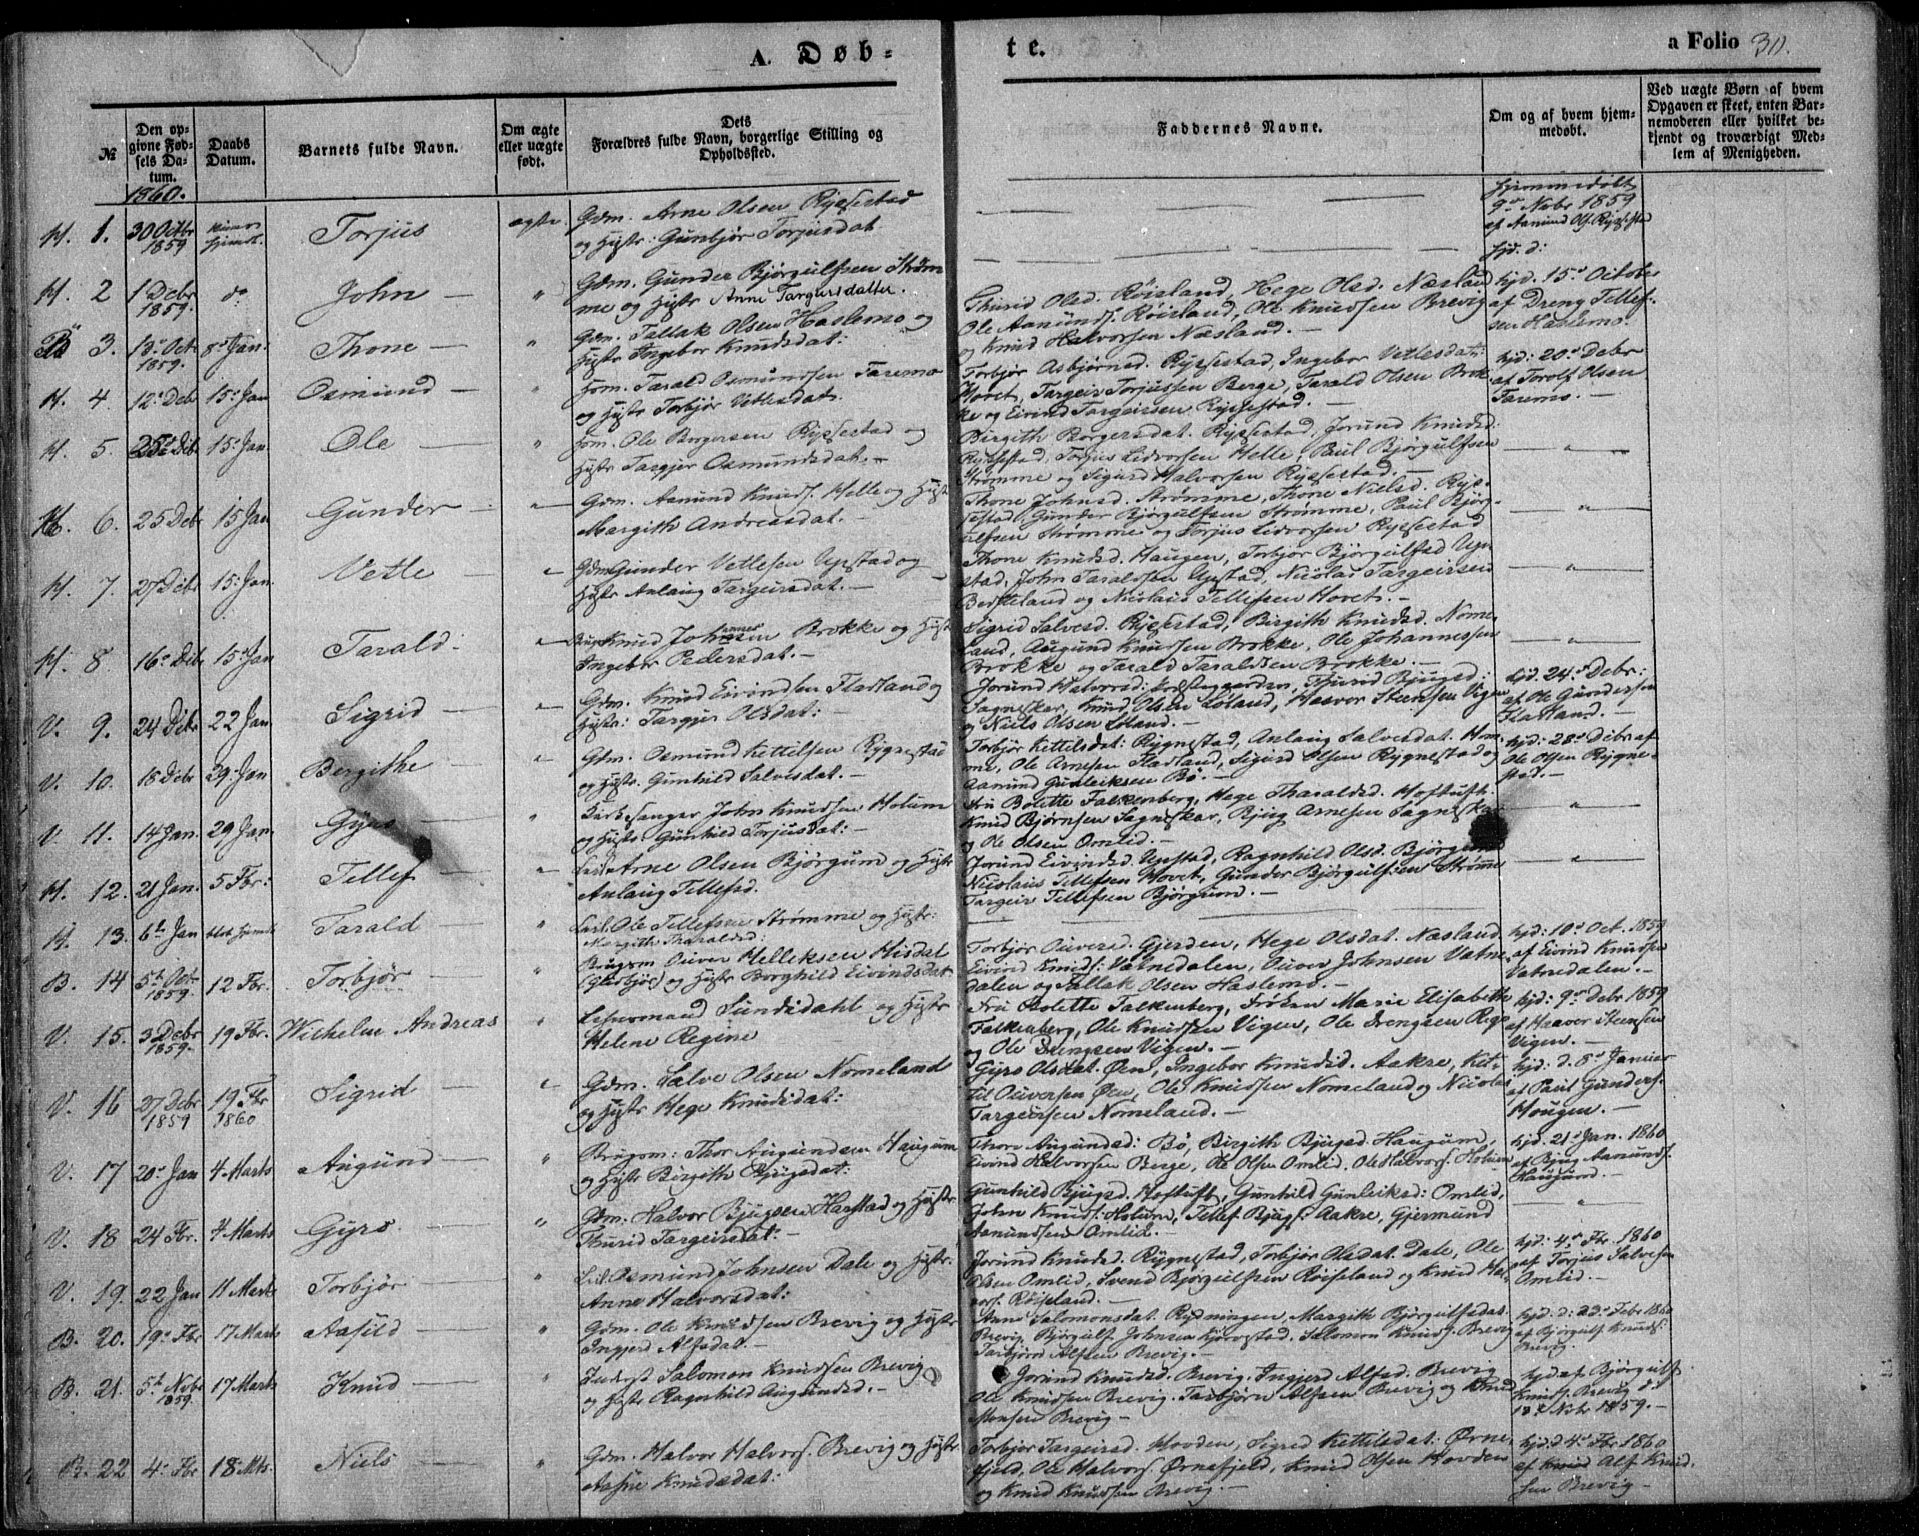 A. Døb-
te.
a Folio 30.
№
Den opgivne Fødsels Datum.
Daabs Datum.
Barnets fulde Navn.
Om ægte eller uægte født.
Dets Forældres fulde Navn, borgerlige Stilling og Opholdssted.
Faddernes Navne.
Om og af hvem hjemmedøbt.
Ved uægte Børn af hvem Opgaven er skeet, enten Barnemoderen eller hvilket bekjendt og troværdigt Medlem af Menigheden.
1860.
H. 1. 30 Octbr 1859 Torjus ægte. Gdm. Arne Olsen Ryssestad
og Hustr: Gunbjør Torjusdat
Hjemmedøbt
9de Nobr 1859
af Aamund Ols. Ryssestad
H. 2 1 Debr 1859. do John " Gdm. Gunder Bjørgulfsen Strøm
me og Hustr Anne Targeirsdatter.
hjd. d:
B 3. 13de Oct 1859. 8de Jan: Thone " Gdm. Tallak Olsen Haslemo og
Hustr Ingebor Knudsdat:
Thurid Olsd. Røisland, Hege Olsd. Næsland
Ole Aanunds. Røisland, Ole Knudsen Brevig
og Knud Halvorsen Næsland.
hjd. 15de October
af Dreng Tellef-
sen Haslemo.
H. 4. 12te Debr 15de Jan Osmund " Hm. Tarald Osmundsen Taremo
og Hustr Torbjør Vetlesdat.
Torbjør Asbjørnsd. Ryssestad, Ingebor Vetlesdat:
Hovet, Targeir Torjussen Berge, Tarald Olsen Brok-
ke og Eivind Targeirsen Ryssestad.
hjd: 20de Debr
af Torolf Olsen
Taremo.
H. 5. 25de Debr 15de Jan. Ole " Hm. Ole Borgersen Ryssestad og
Hustr Targjer Osmundsdat.
Birgith Borgersdat. Ryssestad, Jorund Knudsd:
Ryssestad, Torjus Lidvorsen Helle, Paul Bjørgulfsen
Strømme og Sigurd Halvorsen Ryssestad.
H. 6. 25 Debr 15 Jan Gunder " Gdm. Aamund Knuds. Helle og Hustr
Margith Andreasdat.
Thone Johnsd. Strømme, Thone Nielsd. Rys-
sestad, Gunder Bjørgulfsen Strømme, Paul Bjørg-
ulfsen Strømme og Torjus Lidvorsen Ryssestad
H. 7. 27 Debr 15: Jan Vetle " Gdm Gunder Vetlesen Upstad og
Hustr Anlaug Targeirsdat.
Thone Knudsd. Haugen, Torbjør Bjørgulfsd Up-
stad, John Taraldsen Upstad, Nicolai Targeirsen
og Nicolaus Tellefsen Hovet.
H. 8 16de Debr 15de Jan Tarald " Knud Johannessen Brokke og Hustr
Ingebor Pedersdat.
Sigrid Salvesd. Ryssestad, Birgith Knudsd. Nome-
land, Augund Knudsen Brokke, Ole Johannessen
Brokke og Tarald Taraldsen Brokke.
V. 9. 24 Debr 22 Jan Sigrid " Gdm. Knud Eivindsen Flatland og
Hustr: Targjer Olsdat:
Jorund Halvorsd: Præstegaarden, Thurid Bjugsd:
Sagneskar, Knud Olsen Løland, Haavor Steensen Vigen
og Niels Olsen Løland.
hjd. 24de Debr:
af Ole Gundersen
Flatland.
V. 10. 18 Debr 29: Jan Bergithe " Gdm. Osmund Kittilsen Rygnestad
og Hustr. Gunhild Salvesdat.
Torbjør Kettilsdat: Rygnestad, Anlaug Salvesdat. Hom-
me, Ole Arnesen Flatland, Sigurd Olsen Rygnestad og
Aamund Gunleiksen Bø.
hjd: 28de Debr af
Ole Olsen Rygne-
stad.
V. 11. 14 Jan. 29 Jan. Gyro " Kirkesanger John Knudsen Holum
og Hustr: Gunhild Torjusdat:
Fru Bolette Falkenberg, Hege Tharaldsd. Hoftuft.
Knud Bjørnsen Sagneskar, Bjug Arnesen Sagneskar
og Ole Olsen Omlid.
H. 12. 21 Jan. 5 Fbr: Tellef " Arne Olsen Bjørgum og Hustr
Anlaug Tellefsd.
Jorund Eivindsd. Upstad, Ragnhild Olsd. Bjørgum
Nicolaus Tellefsen Hovet, Gunder Bjørgulfsen Strømme
Targeir Tellefsen Bjørgum.
H. 13. 6te Jan Tarald " Ole Tellefsen Strømme og Hustr:
Margith Tharaldsd.
B. 14 5te Oct 1859. 12 Fbr. Torbjør " Brugsm Ouver Helleksen Hisdal
og Hustr Borghild Eivindsdat
Torbjør Ouversd. Gjerden, Hege Olsdat. Næsland
Eivind Knuds: Vatnedalen, Ouver Johnsen Vatne-
dalen og Tallak Olsen Haslemo.
hjd: 10de Oct. 1859
af Eivind Knudsen
Vatnedalen.
V. 15. 3 Debr 1859. 19 Fbr. Wilhelm Andreas " Lehnsmand Sundsdahl og Hustr
Helene Regine
Fru Bolette Falkenberg, Frøken Marie Elisabeth
Falkenberg, Ole Knudsen Vigen, Ole Drengsen Rige
og Ole Drengsen Vigen.
hjd: 9de Debr 1859
af Haavor Steensen
Vigen.
V. 16 27 Debr 1859 19. Fbr 1860 Sigrid " Gdm. Salve Olsen Nomeland
og Hustr Hege Knudsdat:
Gyro Olsdat. Øen, Ingebor Knudsd. Aakre, Ket-
til Ouversen Øen, Ole Knudsen Nomeland og Nicolas
Targeirsen Nomeland.
hjd. d. 8de Januar
af Paul Gunders.
Hougen.
V. 17 20de Jan 4 Marts Augund " Brugsm: Thor Augundsen Haugum
og Hustr Birgith Bjugsdat:
Thore Augundsd: Bø, Birgith Bjugsd. Haugum,
Eivind Halvorsen Berge, Ole Olsen Omlid, Ole Halvors. Holum
hjd. 21de Jan. 1860
af Bjug Aanunds.
Haugum.
V. 18 24 Fbr. 4 Marts Gyro " Gdm. Halvor Bjugsen Harstad og Hustr
Thurid Targeirsdat.
Gunhild Bjugsd. Hoftuft, Gunhild Gunleiksd: Omlid,
John Knuds: Holum, Tellef Bjugs: Aakre, Gjermund
Aanundsen Omlid.
V. 19. 22 Jan 11 Marts Torbjør " Osmund Johnsen Dale og Hustr.
Anne Halvorsdat:
Jorund Knudsd. Rygnestad, Torbjør Olsdat. Dale, Ole
Olsen Omlid, Svend Bjørgulfsen Røiseland og Knud Hal-
vors. Røiseland.
hjd: 4de Fbr. 1860
af Torjus Salvesen
Omlid.
B. 20. 19de Fbr 17 Marts Aasild " Gdm. Ole Knudsen Brevig og Hustr
Ingjerd Alfsdat.
Anne Salomonsdat. Rysningen, Margith Bjørgulfsdat.
Brevig, Bjørgulf Johnsen Kjørrestad, Salomon Knuds. Brevig
Tarbjørn Alfsen Brevig.
hjd: d: 23de Febr 1860
af Bjørgulf Knuds:
Brevig.
B. 21. 5te Nobr 1859. 17 Marts Knud " Inderst Salomon Knudsen Brevig
og Hustr Ragnhild Augundsd.
Jorund Knudsd. Brevig, Ingjerd Alfsd. Brevig
Ole Knudsen Brevig, Tarbjørn Alfsen Brevig og Knud
Monsen Brevig
hjd af Bjørgulf
Knuds. Brevig d:
18de Nobr 1859.
B. 22 4de Fbr 18 Mts. Niels " Gdm. Halvor Halvors. Brevig og Hustr
Aasne Knudsdat:
Torbjør Targeirsd. Hovden, Sigrid Kettilsdat: Ørne-
fjeld, Ole Halvors. Ørnefjeld, Knud Olsen Hovden
og Knud Knudsen Brevig.
hjd: d 4de Fbr 1860
af Alf Knud-
sen Brevig